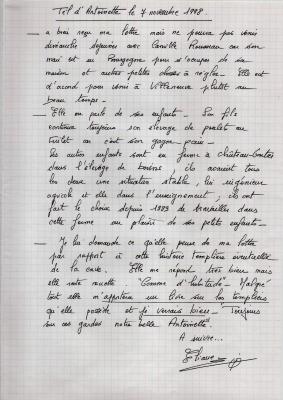 Tel d'Antoinette le 7 novembre 1998.
— a bien reçu ma lettre mais ne pourra pas venir
dimanche déjeuner avec Camille Rousseau car son
mari est en Bourgogne pour s'occuper de sa
maison et autres petites choses à régler - Elle est
d'accord pour venir à Villeneuve plutôt au
beau temps -
— Elle me parle de ses enfants - Son fils
continue toujours son élevage de poulet au
car c'est son gagne pain -
Les autres enfants sont en ferme à château-
dans l'élevage de ils avaient tous
les deux une situation stable, lui ingénieur
agricole et elle dans l'enseignement; ils ont
fait le choix depuis 1995 de travailler dans
cette ferme au plaisir de ses petits enfants -
— Je lui demande ce qu'elle pense de ma lettre
par rapport à cette histoire templière éventuelle
de ta cave. Elle me répond très bien mais
elle reste muette "Comme d'habitude" - Malgré
tout elle m'apportera un livre sur les templiers
qu'elle possède et je verrais bien - Toujours
sur ces gardes notre belle Antoinette"
A suivre...